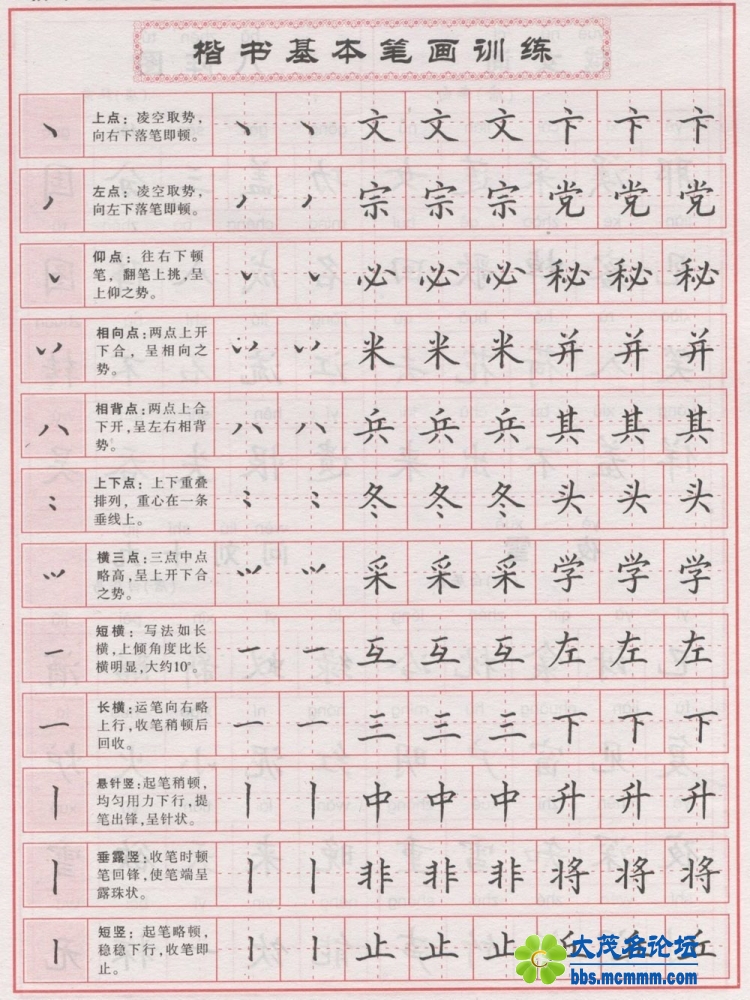 楷书基本笔画训练
丶 上点：凌空取势， 丶 丶 文 文 文 卞 卞 卞
向右下落笔即顿。
左点：凌空取势， 宗 宗 宗 党 党 党
向左下落笔即顿。
仰点：往右下顿 必 必 必 秘 秘 秘
笔，翻笔上挑，呈
上仰之势。
相向点：两点上开 米 米 米 并 并 并
下合，呈相向之
势。
相背点：两点上合 兵 兵 兵 其 其 其
下开，呈左右相背
势。
上下点：上下重叠 冬 冬 冬 头 头 头
排列，重心在一条
垂线上。
横三点：三点中点 采 采 采 学 学 学
略高，呈上开下合
之势。
一 短横：写法如长 一 一 互 互 互 左 左 左
横，上倾角度比长
横明显，大约10°。
一 长横：运笔向右略 一 一 三 三 三 下 下 下
上行，收笔稍顿后
回收。
丨 悬针竖：起笔稍顿， 丨 丨 中 中 中 升 升 升
均匀用力下行，提
笔出锋，呈针状。
丨 垂露竖：收笔时顿 丨 丨 非 非 非 将 将 将
笔回锋，使笔端呈
露珠状。
丨 短竖：起笔略顿， 丨 丨 止 止 止 丘 丘 丘
稳稳下行，收笔即
止。
大茂名论坛
bbs.mcmmm.com